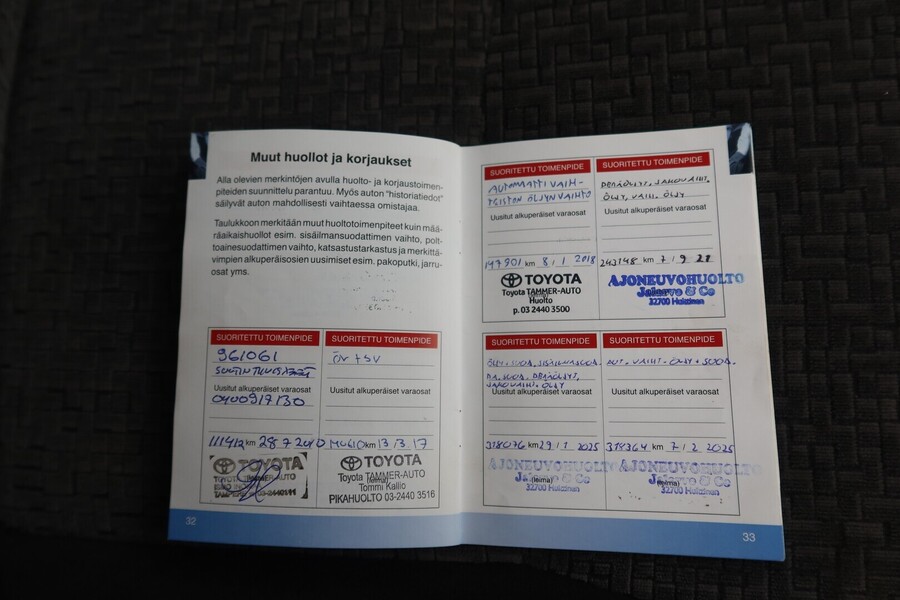 Muut huollot ja korjaukset
Alla olevien merkintöjen avulla huolto- ja korjaustoimen-
piteiden suunnittelu parantuu. Myös auton "historiatiedot"
säilyvät auton mahdollisesti vaihtaessa omistajaa.
Taulukkoon merkitään muut huoltotoimenpiteet kuin mää-
räaikaishuollot esim. sisäilmansuodattimen vaihto, polt-
toainesuodattimen vaihto, katsastustarkastus ja merkittä-
vimpien alkuperäisosien uusimiset esim. pakoputki, jarru-
osat yms.
SUORITETTU TOIMENPIDE
961061
Uusitut alkuperäiset varaosat
0400917130
111412 km 28.7
TOYOTA
SUORITETTU TOIMENPIDE
ÖV + SV
Uusitut alkuperäiset varaosat
km 13/3 17
TOYOTA
Toyota TAMMER-AUTO
Tommi Kallio
PIKAHUOLTO 03-2440 3516
32
SUORITETTU TOIMENPIDE
AUTOMAATTI VAIH-
TEISTON ÖLJYNVAIHTO
Uusitut alkuperäiset varaosat
147901 km 8 / 1 2018
TOYOTA
Toyota TAMMER-AUTO
Huolto
p. 03 2440 3500
SUORITETTU TOIMENPIDE
PERÄÖLJYT, JAKOVAIHT.
ÖLJY, VAIH. ÖLJY
Uusitut alkuperäiset varaosat
243148 km 7 / 9 21
AJONEUVOHUOLTO
& Co
32700 Huittinen
SUORITETTU TOIMENPIDE
PERÄÖLJYT,
JAKOVAIHT. ÖLJY
Uusitut alkuperäiset varaosat
318076 km 29 / 1 2025
AJONEUVOHUOLTO
(leima)
32700 Huittinen
SUORITETTU TOIMENPIDE
AUT. VAIHT. ÖLJY + SUOD.
Uusitut alkuperäiset varaosat
318364 km 7 / 2 2025
AJONEUVOHUOLTO
(leima)
32700 Huittinen
33